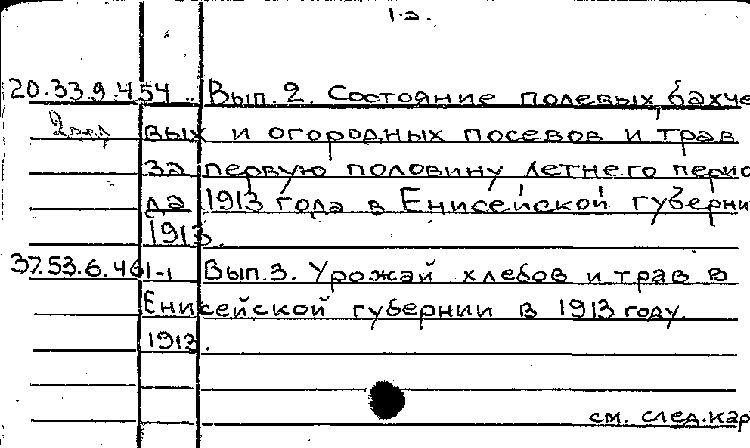 1-а.
20.33.9.454 Вып. 2. Состояние полевых, бахче
2 экз вых и огородных посевов и трав
за первую половину летнего перио
да 1913 года в Енисейской губерни
1913.
37.53.6.461-1 Вып.3. Урожай хлебов и трав в
Енисейской губернии в 1913 году.
1913.
см. след.кар